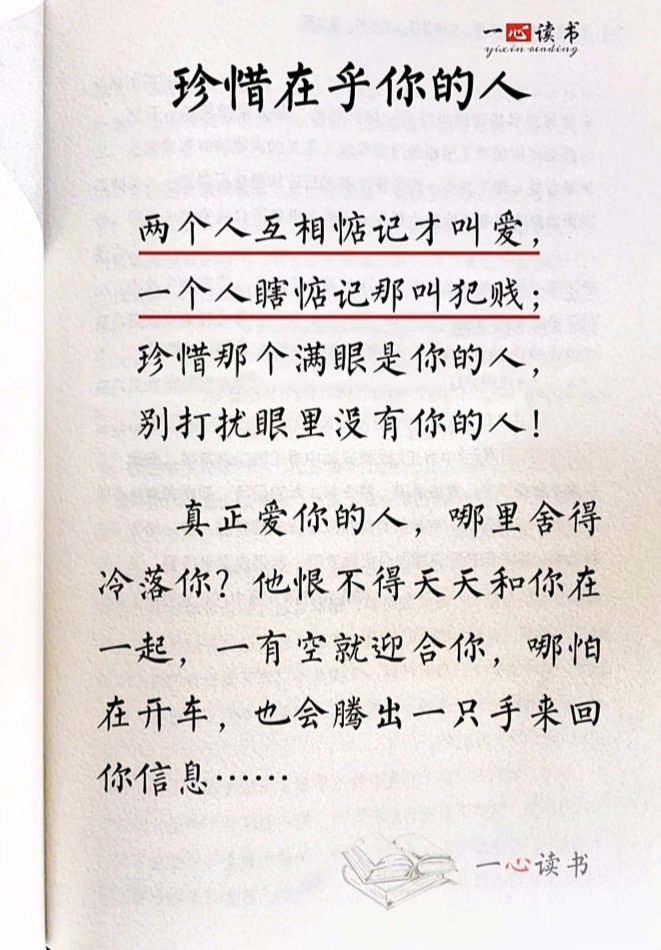 一心读书
yixin reading
珍惜在乎你的人
两个人互相惦记才叫爱，
一个人瞎惦记那叫犯贱；
珍惜那个满眼是你的人，
别打扰眼里没有你的人！
真正爱你的人，哪里舍得
冷落你？他恨不得天天和你在
一起，一有空就迎合你，哪怕
在开车，也会腾出一只手来回
你信息……
一心读书